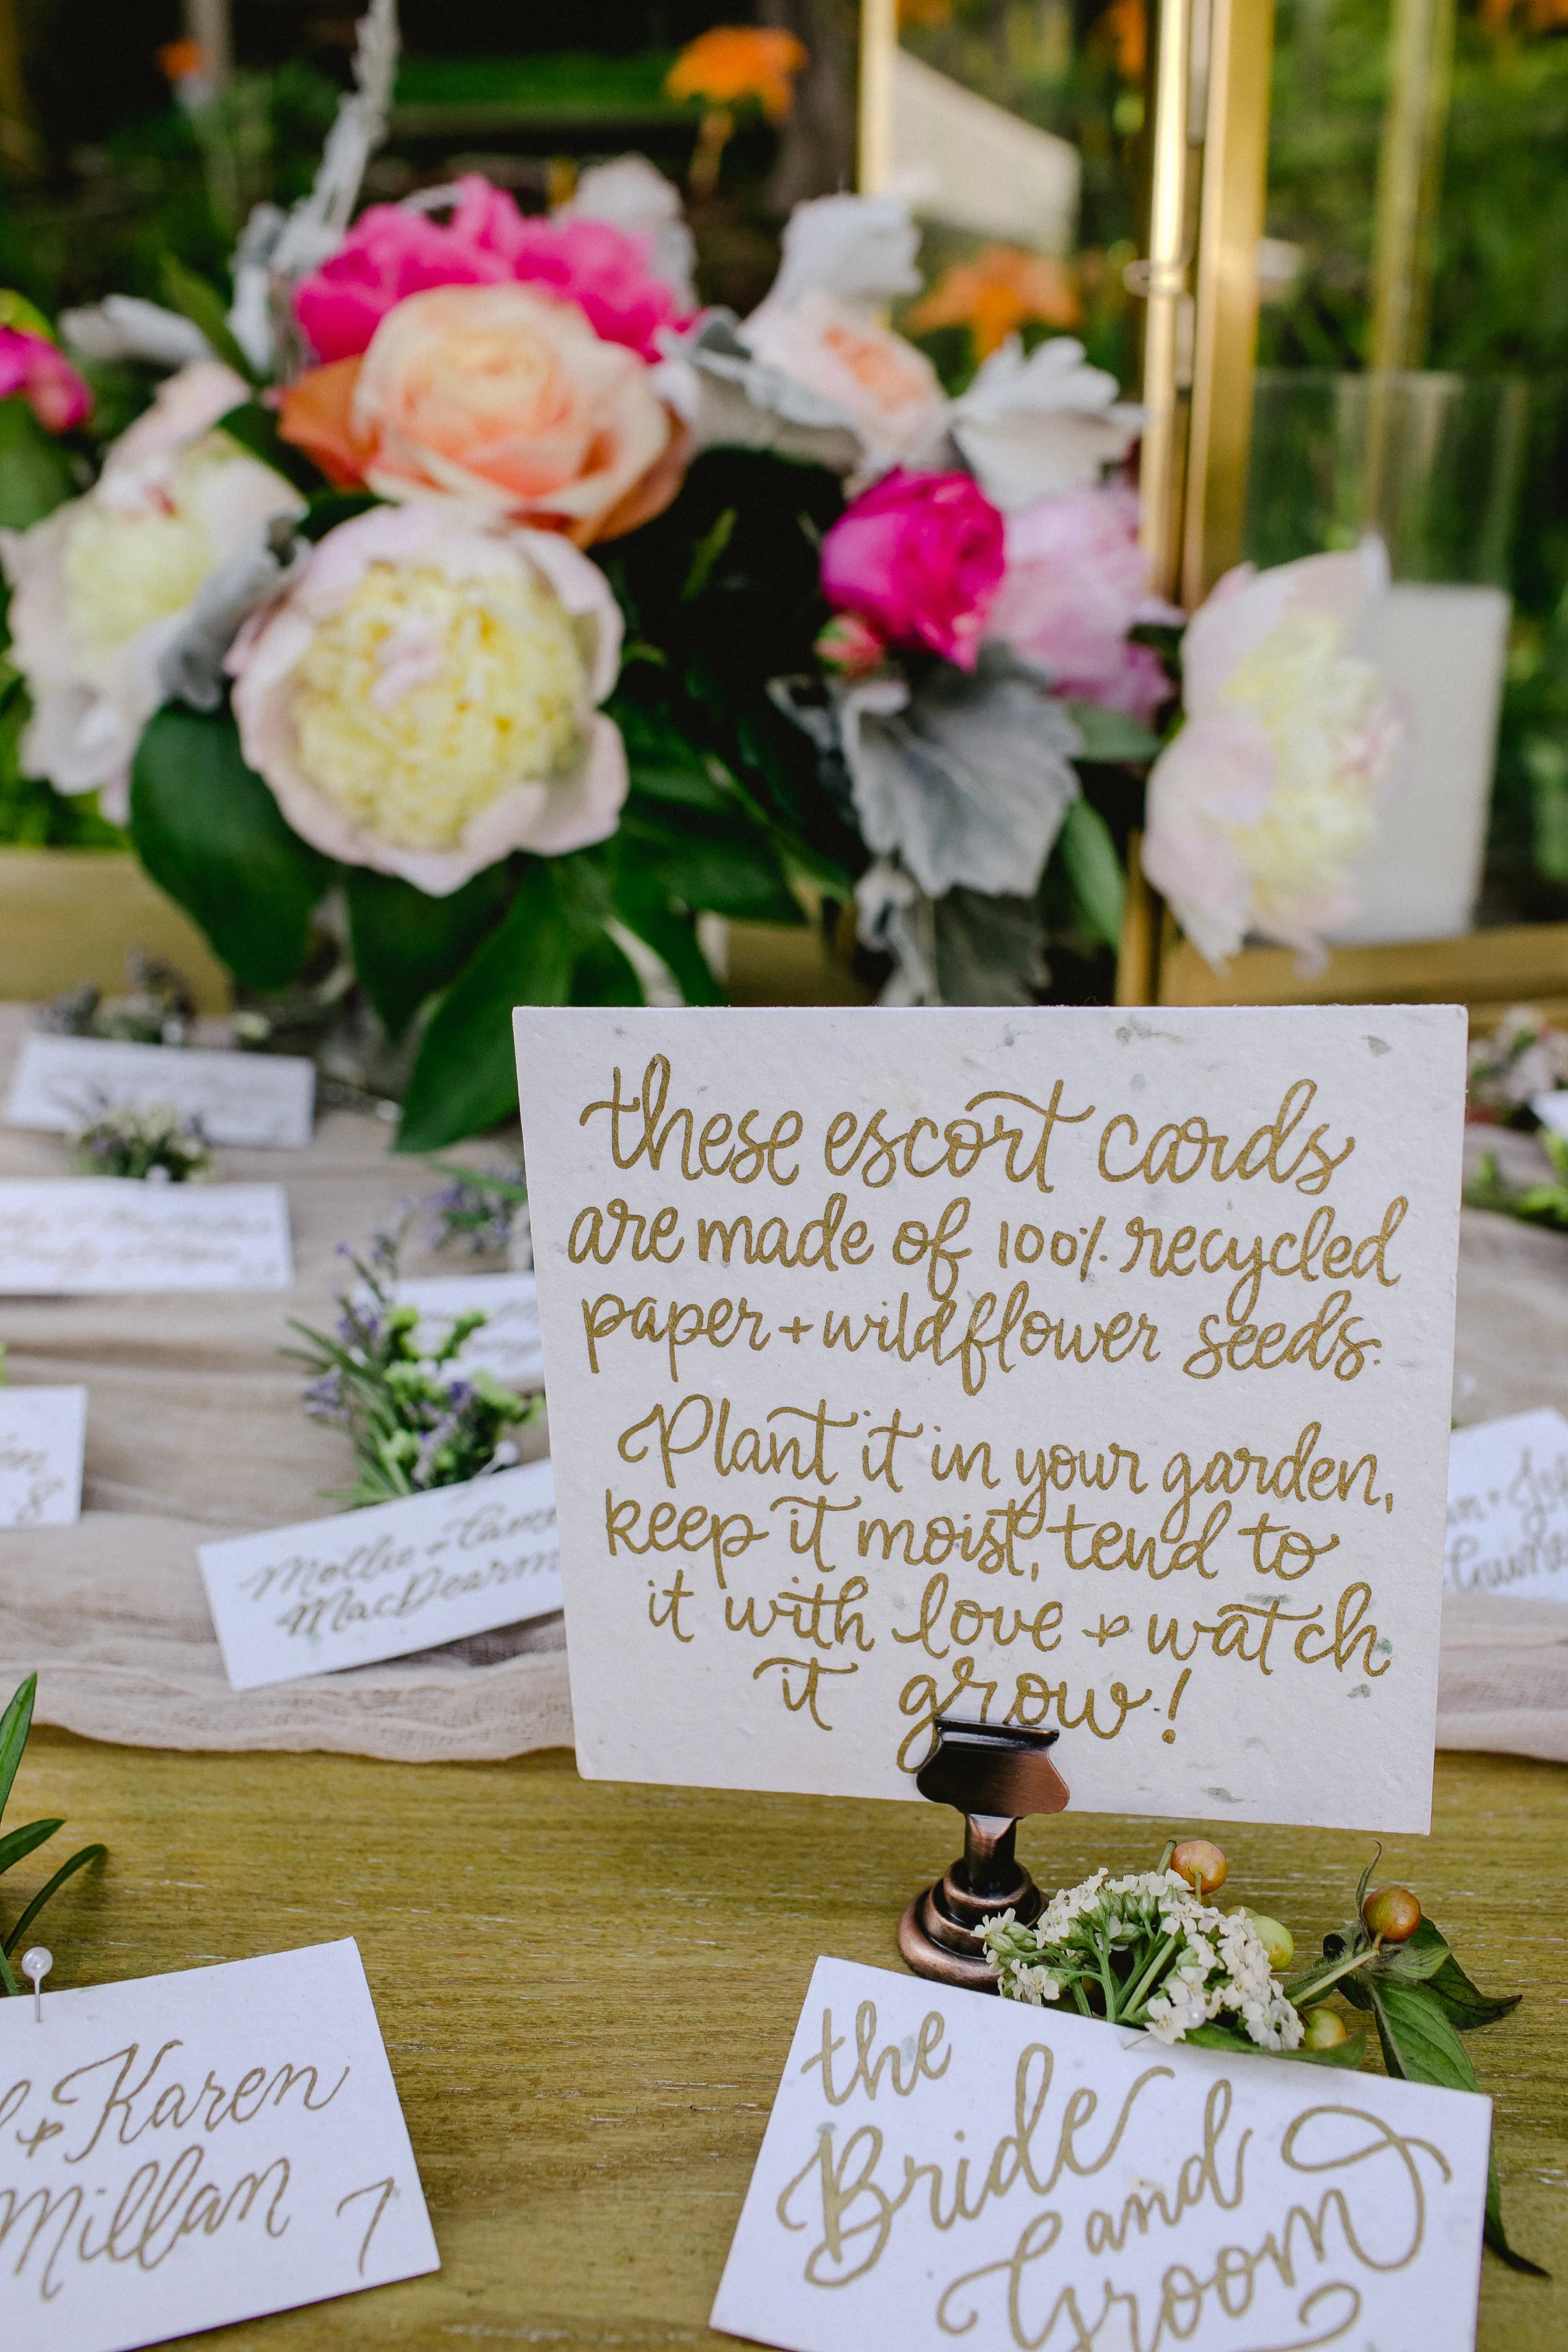 these escort cards
are made of 100% recycled
paper + wildflower seeds.
Plant it in your garden,
keep it moist, tend to
it with love & watch
it grow!
Mollie +
MacDearm
& Karen
Millan 7
the
Bride
and
Groom